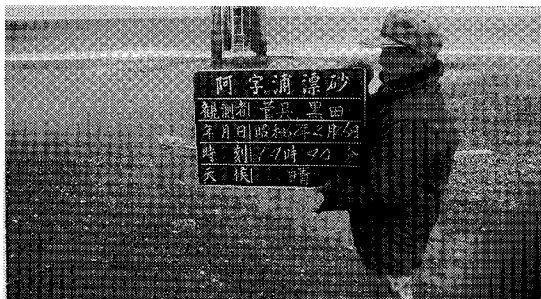 阿字浦漂砂
観測者 菅呉 黒田
年月日 昭和 年2月 日
時刻 時40分
天候 晴